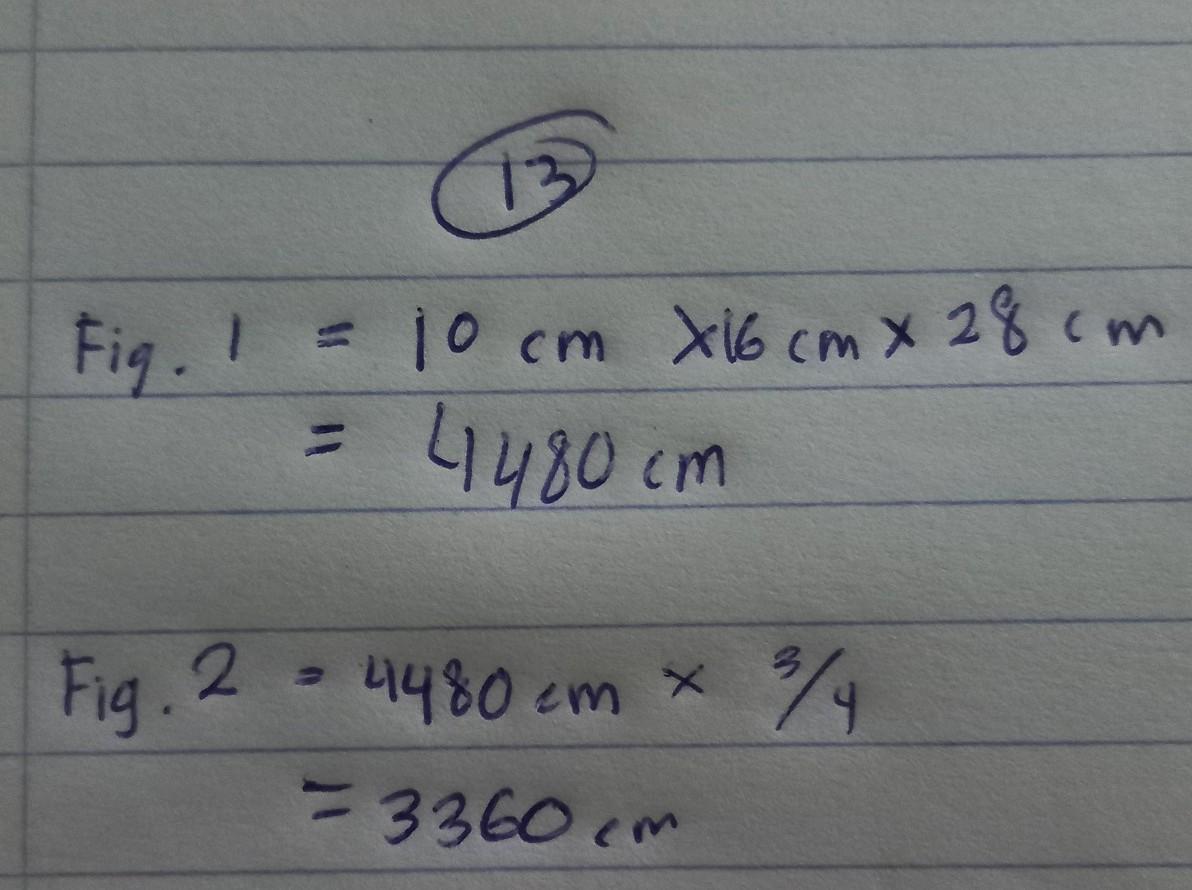 13
Fig. 1 = 10 cm ×16 cm × 28 cm
= 4480 cm
Fig. 2 = 4480 cm × 3/4
= 3360 cm